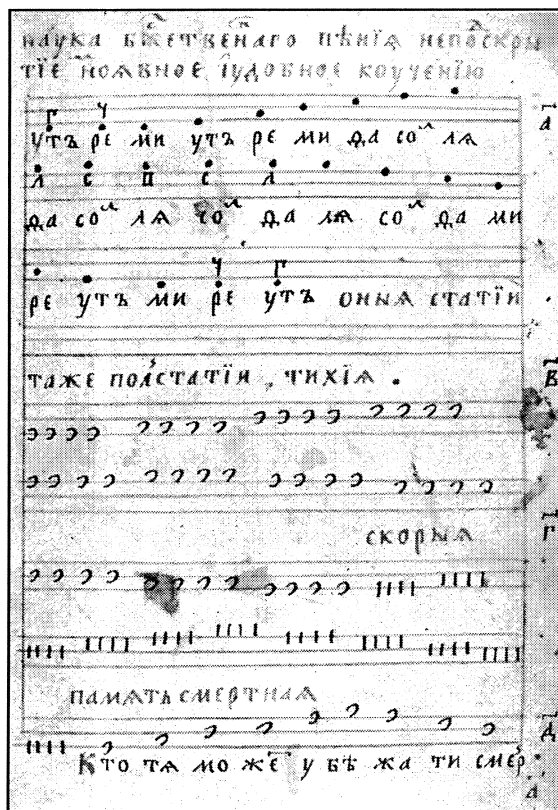 наука бж҃ественнаго пѣнїѧ непоскры
тїе ꙗвное їудобное коученїю
г ч
утъ ре ми утъ ре ми ѳа солъ лѧ а҃
л с п с л
ѳа сол лѧ чол ѳа лѧ сол ѳа ми
ч г
ре утъ ми ре утъ оныѧ статїи
таже полстатїи, тихїѧ. в҃
скорыѧ г҃
памѧть смертнаѧ д҃
Кто тѧ може у бѣ жа ти смер